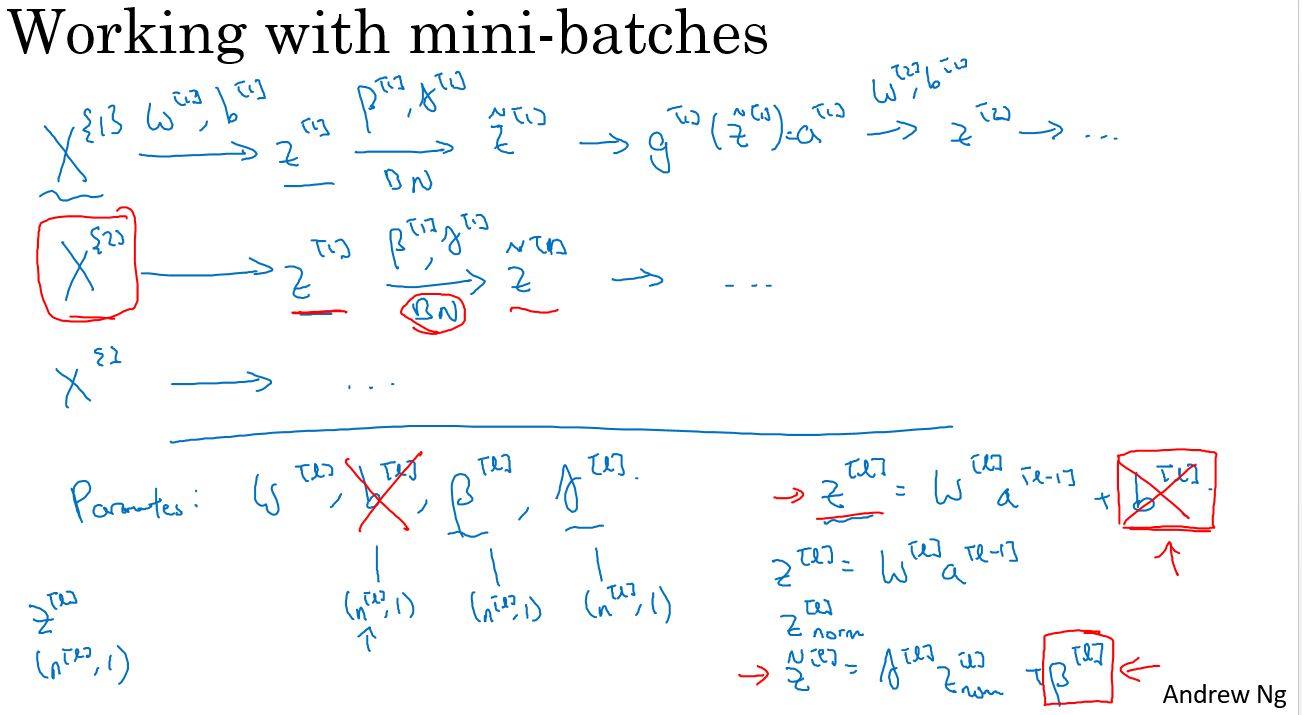 Working with mini-batches
X^{1} W^[1], b^[1] → z^[1] β^[1], γ^[1] → BN z̃^[1] → g^[1](z̃^[1]) = a^[1] W^[2], b^[2] → z^[2] → ...
X^{2} → z^[1] β^[1], γ^[1] → BN z̃^[1] → ...
X^{3} → ...
Parameters: W^[l], b^[l], β^[l], γ^[l]. → z^[l] = W^[l] a^[l-1] + b^[l].
z^[l] = W^[l] a^[l-1]
z^[l] (n^[l], 1) (n^[l], 1) (n^[l], 1) z^[l]_norm
(n^[l], 1) → z̃^[l] = γ^[l] z^[l]_norm + β^[l] ←
Andrew Ng